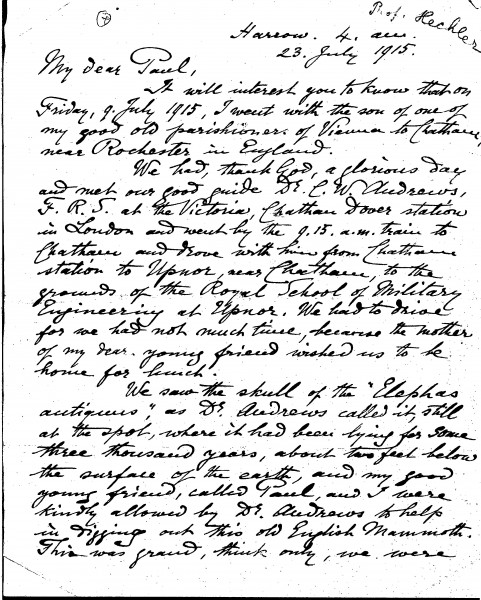 Prof. Hechler
Harrow. 4. am.
23. July 1915.
My dear Paul,
It will interest you to know that on
Friday, 9. July 1915, I went with the son of one of
my good old parishioners of Vienna to Chatham,
near Rochester in England.
We had, thank God, a glorious day
and met our good guide Dr. C. W. Andrews,
F. R. S. at the Victoria, Chatham Dover station
in London and went by the 9.15. a.m. train to
Chatham and drove with him from Chatham
station to Upnor, near Chatham, to the
grounds of the Royal School of Military
Engineering at Upnor. We had to drive
for we had not much time, because the mother
of my dear young friend wished us to be
home for lunch.
We saw the skull of the "Elephas
antiquus", as Dr. Andrews called it, still
at the spot, where it had been lying for some
three thousand years, about two feet below
the surface of the earth, and my good
young friend, called Paul, and I were
kindly allowed by Dr. Andrews to help
in digging out this old English Mammoth.
This was grand, think only, we were